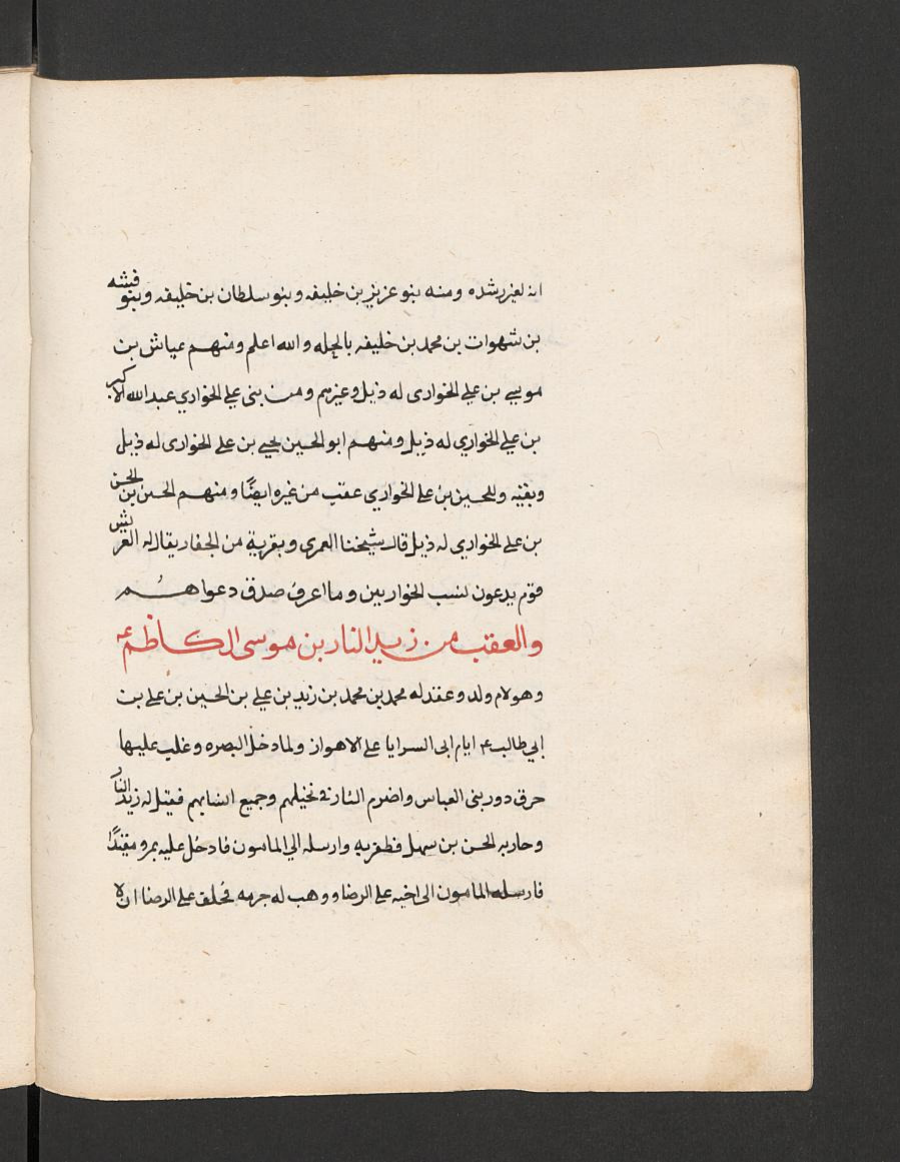 انه لغير رشده ومنه بنو عزيز بن خليفه وبنو سلطان بن خليفه وبنو فيشه
بن شهوات بن محمد بن خليفه بالحله والله اعلم ومنهم عياش بن
موسى بن علي الخوارى له ذيل وغيرهم ومن بنى علي الخواري عبد الله الاكبر
بن علي الخواري له ذيل ومنهم ابو الحسين يحيى بن على الخوارى له ذيل
وبقيه وللحسين بن علي الخواري عقب من غيره ايضًا ومنهم الحسن بن الحسن
بن على الخوارى له ذيل قال شيخنا العمري وبقرية من الجفار يقال له العريش
قوم يدعون لنسب الخواريين وما اعرف صدق دعواهم
والعقب من زيد النار بن موسى الكاظم عه
وهو لام ولد وعقد له محمد بن محمد بن زيد بن علي بن الحسين بن علي بن
ابي طالب ع ايام ابى السرايا على الاهواز ولما دخل البصره وغلب عليها
حرق دور بنى العباس واضرم النار فى نخيلهم وجميع اسبابهم فقيل له زيد النار
وحاربه الحسن بن سهل فظفر به وارسله الي المامون فادخل عليه بمرو مقيدًا
فارسله المامون الى اخيه على الرضا ووهب له جرمه فحلف على الرضا ان لا